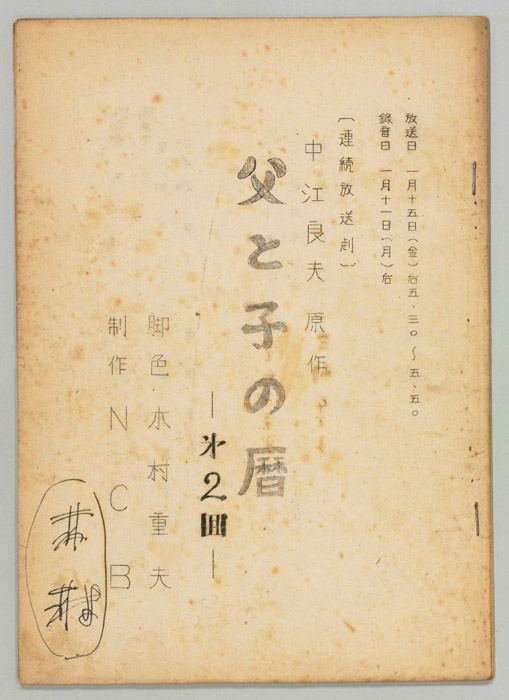 放送日 一月十五日(金)后五・三〇〜五、五〇
録音日 一月十一日(月)后
〔連続放送劇〕
中江良夫 原作
父と子の暦
―㐧2回―
脚色・木村重夫
制作 NCB